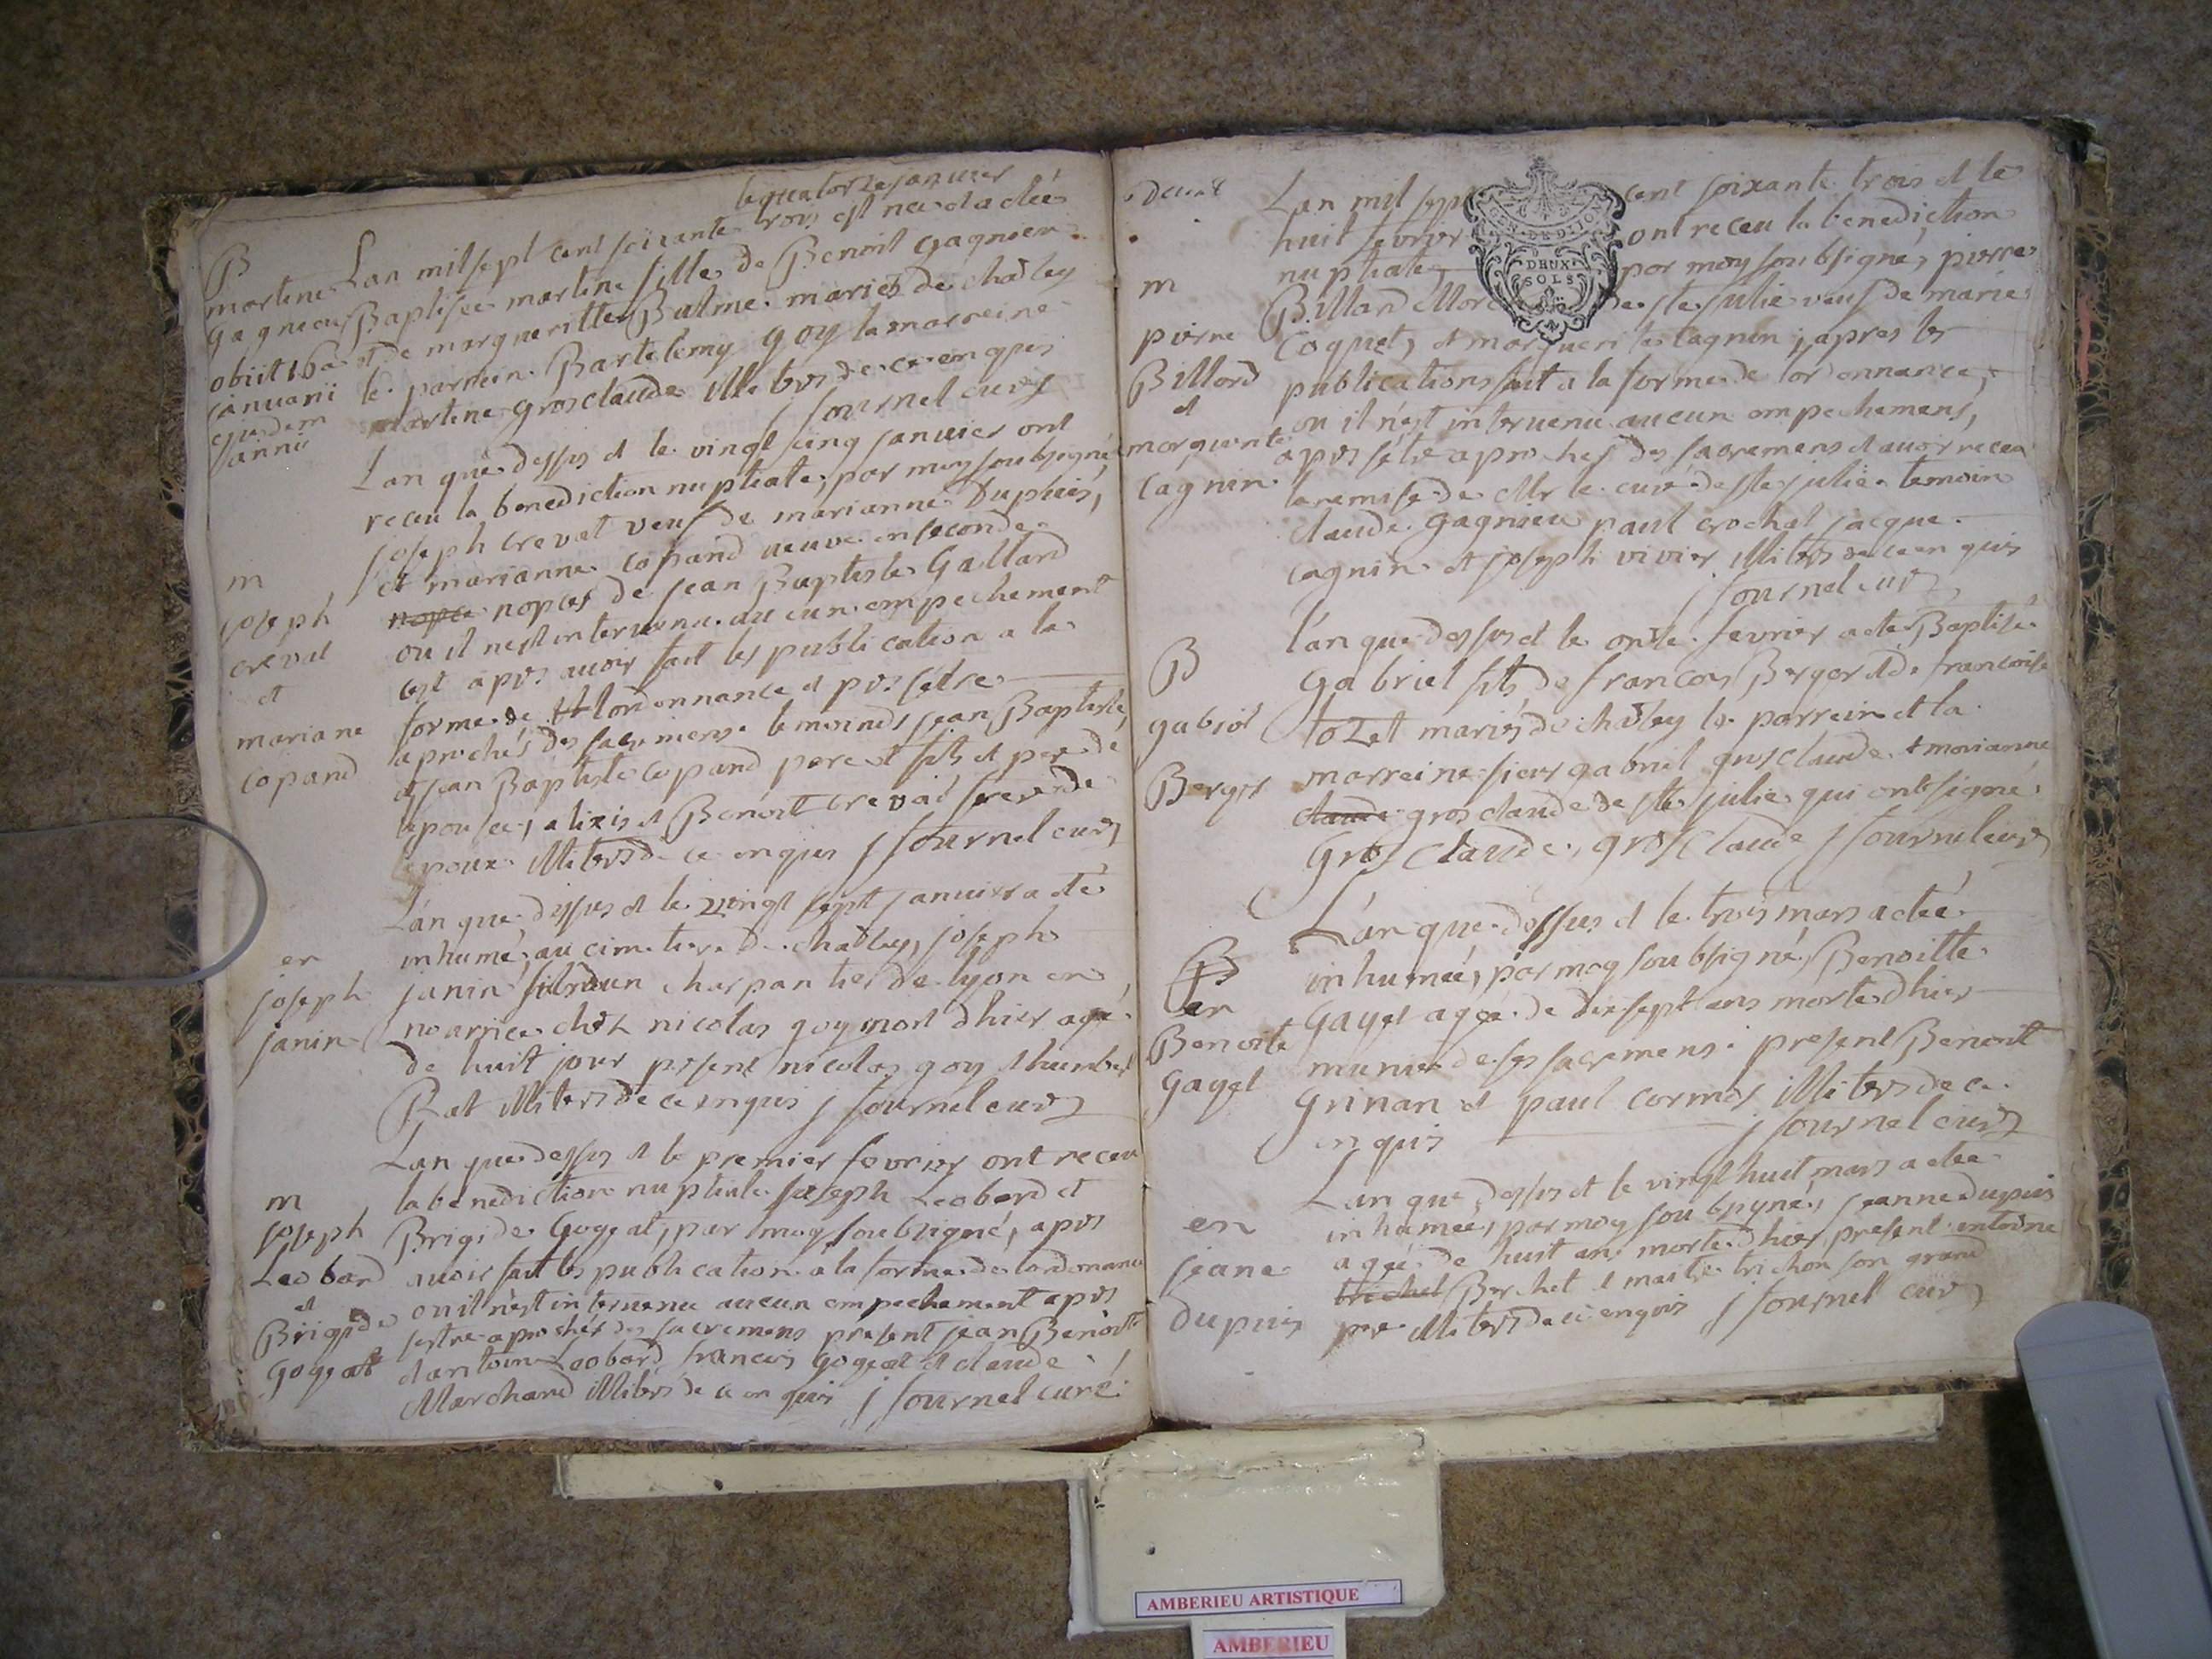 le quatorze janvier
B
martine
gagnieu
obiit 16a
januarii
ejusdem
anni
Lan mil sept cent soixante trois est née et a étée
Baptisée martine fille de Benoit gagnieu
et de margueritte Balme mariés de chaley
le parrein Bartelemy goy la marreine
martine grosclaude illiterés de ce enquis
J fournel curé
m
joseph
creval
et
mariane
copand
Lan que dessus et le vingt cinq janvier ont
receu la benediction nuptiale, par moy soubsigné
joseph creval veuf de marianne Dupuis,
et marianne copand veuve en seconde
nopce nopces de jean Baptiste Galland
ou il nest intervenu aucun empechement
cest apres avoir fait les publication a la
forme de lordonnance et pres setre
aprochés des sacremens temoineds jean Baptiste,
et jean Baptiste copand pere et fils et pere de
lepousée, alixis et Benoit creval frere de
lepoux illiterés de ce enquis J fournel curé
en
joseph
janin
Lan que dessus et le vingt sept janvier a été
inhumé, au cimetiere de chaley, joseph
janin fils dun charpantier de lyon en
nourrice chez nicolas goy mort dhier agé
de huit jour present nicolas goy
Rat illiterés de ce enquis J fournel curé
m
joseph
Leobard
et
Brigide
gogeat
Lan que dessus et le premier fevrier ont receu
la benediction nuptiale joseph Leobard et
Brigide Gogeat, par moy soubsigné, apres
avoir fait les publication a la forme de lordonnance
ou il nest intervenu aucun empechement apres
sestre aprochés des sacremens present jean Benoit
et antoine Leobard francois gogeat et claude
Marchand illiterés de ce enquis J fournel curé
DEUX
SOLS
m
pierre
Billard
et
marguerite
cagnin
Lan mil sept cent soixante trois et le
huit fevrier ont receu la benediction
nuptiale par moy soubsigné, pierre
Billard de ste julie veuf de marie
Coquet, et marguerite cagnin, apres les
publications fait a la forme de lordonnance,
ou il nest intervenu aucun empechemens,
apres sétre aprochés des sacremens et avoir receu
la remise de Mr le curé de ste julie temoin
claude gagnieu paul crochat jacque
cagnin et joseph vivier illiterés de ce enquis
J fournel curé
B
gabriel
Berger
l'an que dessus et le onze fevrier a été Baptisé
Gabriel fils de francois Berger et de francoise
tozet mariés de chaley le parrein et la
marreine sieur gabriel grosclaude et marianne
claude grosclaude de ste julie qui ont signé
Gros Claude, gros claude J fournel curé
B
en
Benoite
Gayet
L'an que dessus et le trois mars a étée
inhumée, par moy soubsigné, Benoitte
Gayet agée de dixsept ans morte dhier
munie de ses sacremens present Benoit
Grinan et paul cormor illiterés de ce
enquis J fournel curé
en
jeane
dupuis
Lan que dessus et le vingt huit mars a étée
inhumée, par moy soubsigné, jeanne dupuis
agée de huit ans morte dhier, present antoine
trichet Berchet et maitre trichon son grand
pere illiterés de ce enquis J fournel curé
AMBERIEU ARTISTIQUE
AMBERIEU